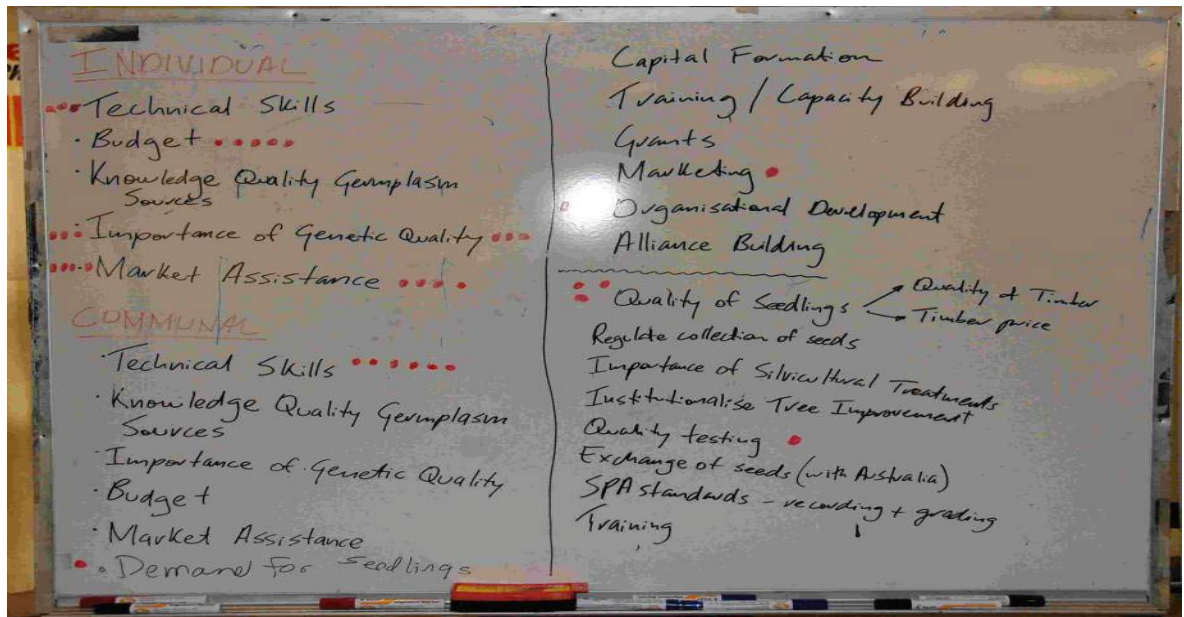 INDIVIDUAL
· Technical Skills
· Budget
· Knowledge Quality Germplasm
Sources
· Importance of Genetic Quality
· Market Assistance
COMMUNAL
· Technical Skills
· Knowledge Quality Germplasm
Sources
· Importance of Genetic Quality
· Budget
· Market Assistance
· Demand for Seedlings
Capital Formation
Training / Capacity Building
Grants
Marketing
Organisational Development
Alliance Building
Quality of Seedlings → Quality of Timber
→ Timber price
Regulate collection of seeds
Importance of Silvicultural Treatments
Institutionalise Tree Improvement
Quality testing
Exchange of seeds (with Australia)
SPA standards - recording + grading
Training